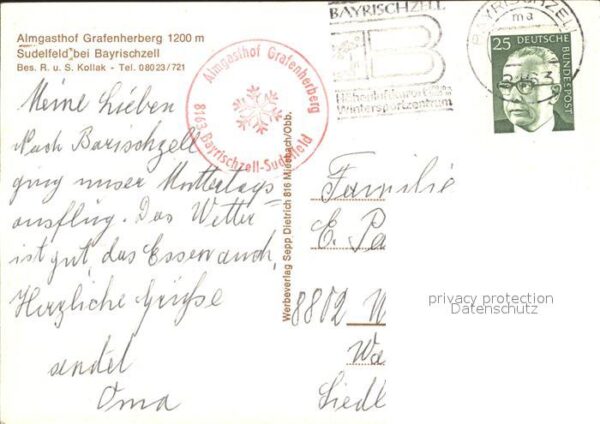 Almgasthof Grafenherberg 1200 m
Sudelfeld bei Bayrischzell
Bes. R. u. S. Kollak - Tel. 08023/721
Almgasthof Grafenherberg
8163 Bayrischzell-Sudelfeld
BAYRISCHZELL
B
Wintersportzentrum
BAYRISCHZELL
ma
25 DEUTSCHE
BUNDESPOST
Meine Lieben
Nach Barischzell
ging unser Muttertags-
ausflug. Das Wetter
ist gut, das Essen auch,
Herzliche Grüße
sendet
Oma
Werbeverlag Sepp Dietrich 816 Miesbach/Obb.
Familie
E. Pa
8802 W
Wa
Siedl
privacy protection
Datenschutz